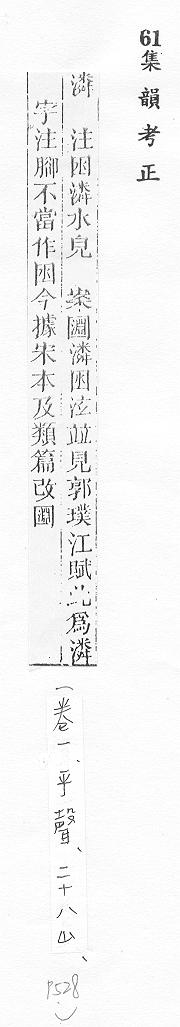 61集韻考正
潾 注囦潾水皃 案㘤潾囦泫並見郭璞江賦此爲潾
字注腳不當作囦今據宋本及類篇改㘤
(卷一、平聲、二十八山、
P528)